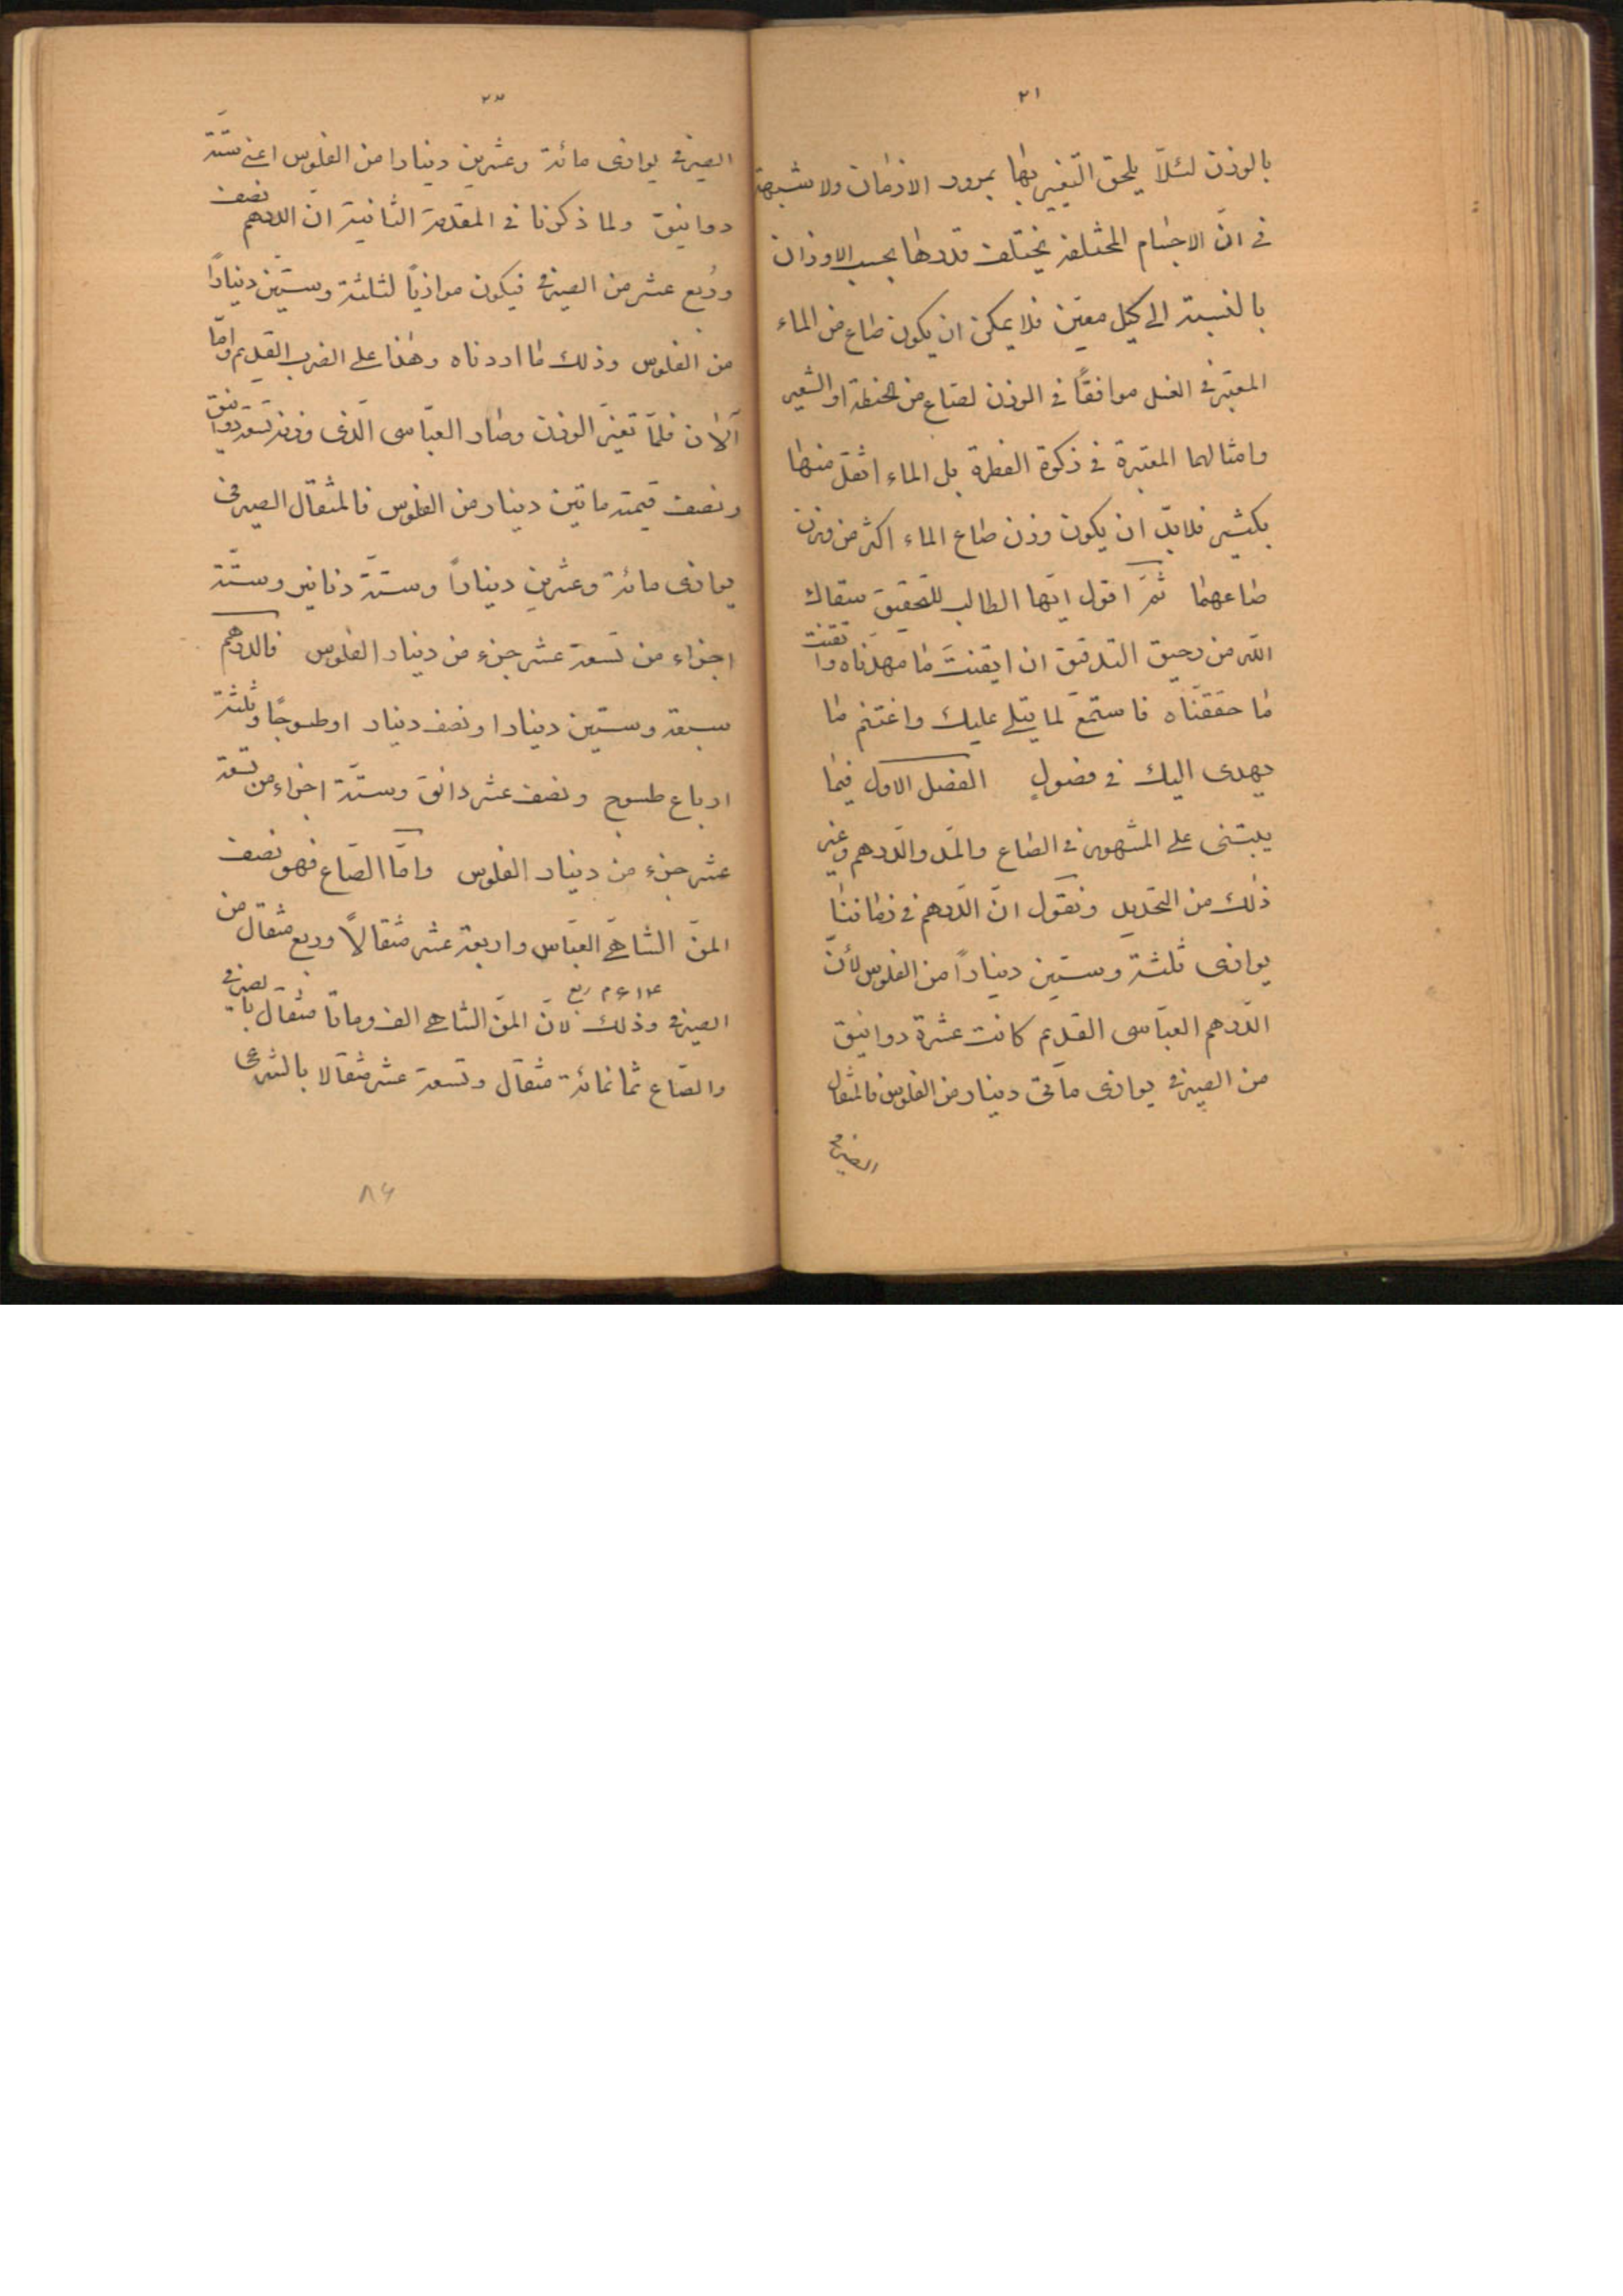 ٢١
بالوزن لئلّا يلحق التّغيير بها بمرور الازمان ولا شبهة
فى انّ الاجسام المختلفة يختلف قدرها بحسب الاوزان
بالنسبة الى كيل معيّن فلا يمكن ان يكون صاع من الماء
المعتبر فى الغسل موافقًا فى الوزن لصاع من الحنطة او الشعير
وامثالهما المعتبرة فى زكوة الفطرة بل الماء اثقل منها
بكثير فلابدّ ان يكون وزن صاع الماء اكثر من وزن
صاعهما ثمّ اقول ايّها الطالب للتّحقيق سقاك
الله من رحيق التدقيق ان ايقنتَ ما مهدّناه واتقنت
ما حقّقناه فاستمع لما يتلى عليك واغتنم ما
يهدى اليك فى فصولٍ الفصل الاول فيما
يبتنى على المشهور فى الصاع والمدّ والدّرهم وغير
ذلك من التحديد ونقول انّ الدّرهم فى زماننا
يوازى ثلثة وستين دينارًا من الفلوس لأنّ
الدّرهم العبّاسى القديم كانت عشرة دوانيق
من الصيرفى يوازى مأتى دينار من الفلوس فالمثقال
الصيرفى
٢٣
الصيرفى يوازى مائة وعشرين دينارا من الفلوس اعنى ستّة
دوانيق ولما ذكرنا فى المقدمة الثانية ان الدرهم نصف
ورُبع عشر من الصيرفى فيكون موازيًا لثلثة وستّين دينارًا
من الفلوس وذلك ما اردناه وهذا على الضرب القديم وامّا
الآن فلمّا تغيّر الوزن وصار العبّاسى الّذى وزنه تسعة دوانيق
ونصف قيمته ماتين دينار من الفلوس فالمثقال الصيرفى
يوازى مائة وعشرين دينارًا وستّة دنانير وستّة
اجزاء من تسعة عشر جزء من دينار الفلوس فالدرهم
سبعة وستّين دينارا ونصف دينار اوطسوجًا وثلثة
ارباع طسوج ونصف عشر دانق وستّة اجزاء من تسعة
عشر جزء من دينار الفلوس وامّا الصّاع فهو نصف
المنّ الشاهى العبّاسى واربعة عشر مثقالًا وربع مثقال من
٦١٤ م ربع
الصيرفى وذلك لانّ المنّ الشاهى الف ومأتا مثقال بالصيرفى
والصّاع ثمانمائة مثقال وتسعة عشر مثقالا بالشرعى
٨٦